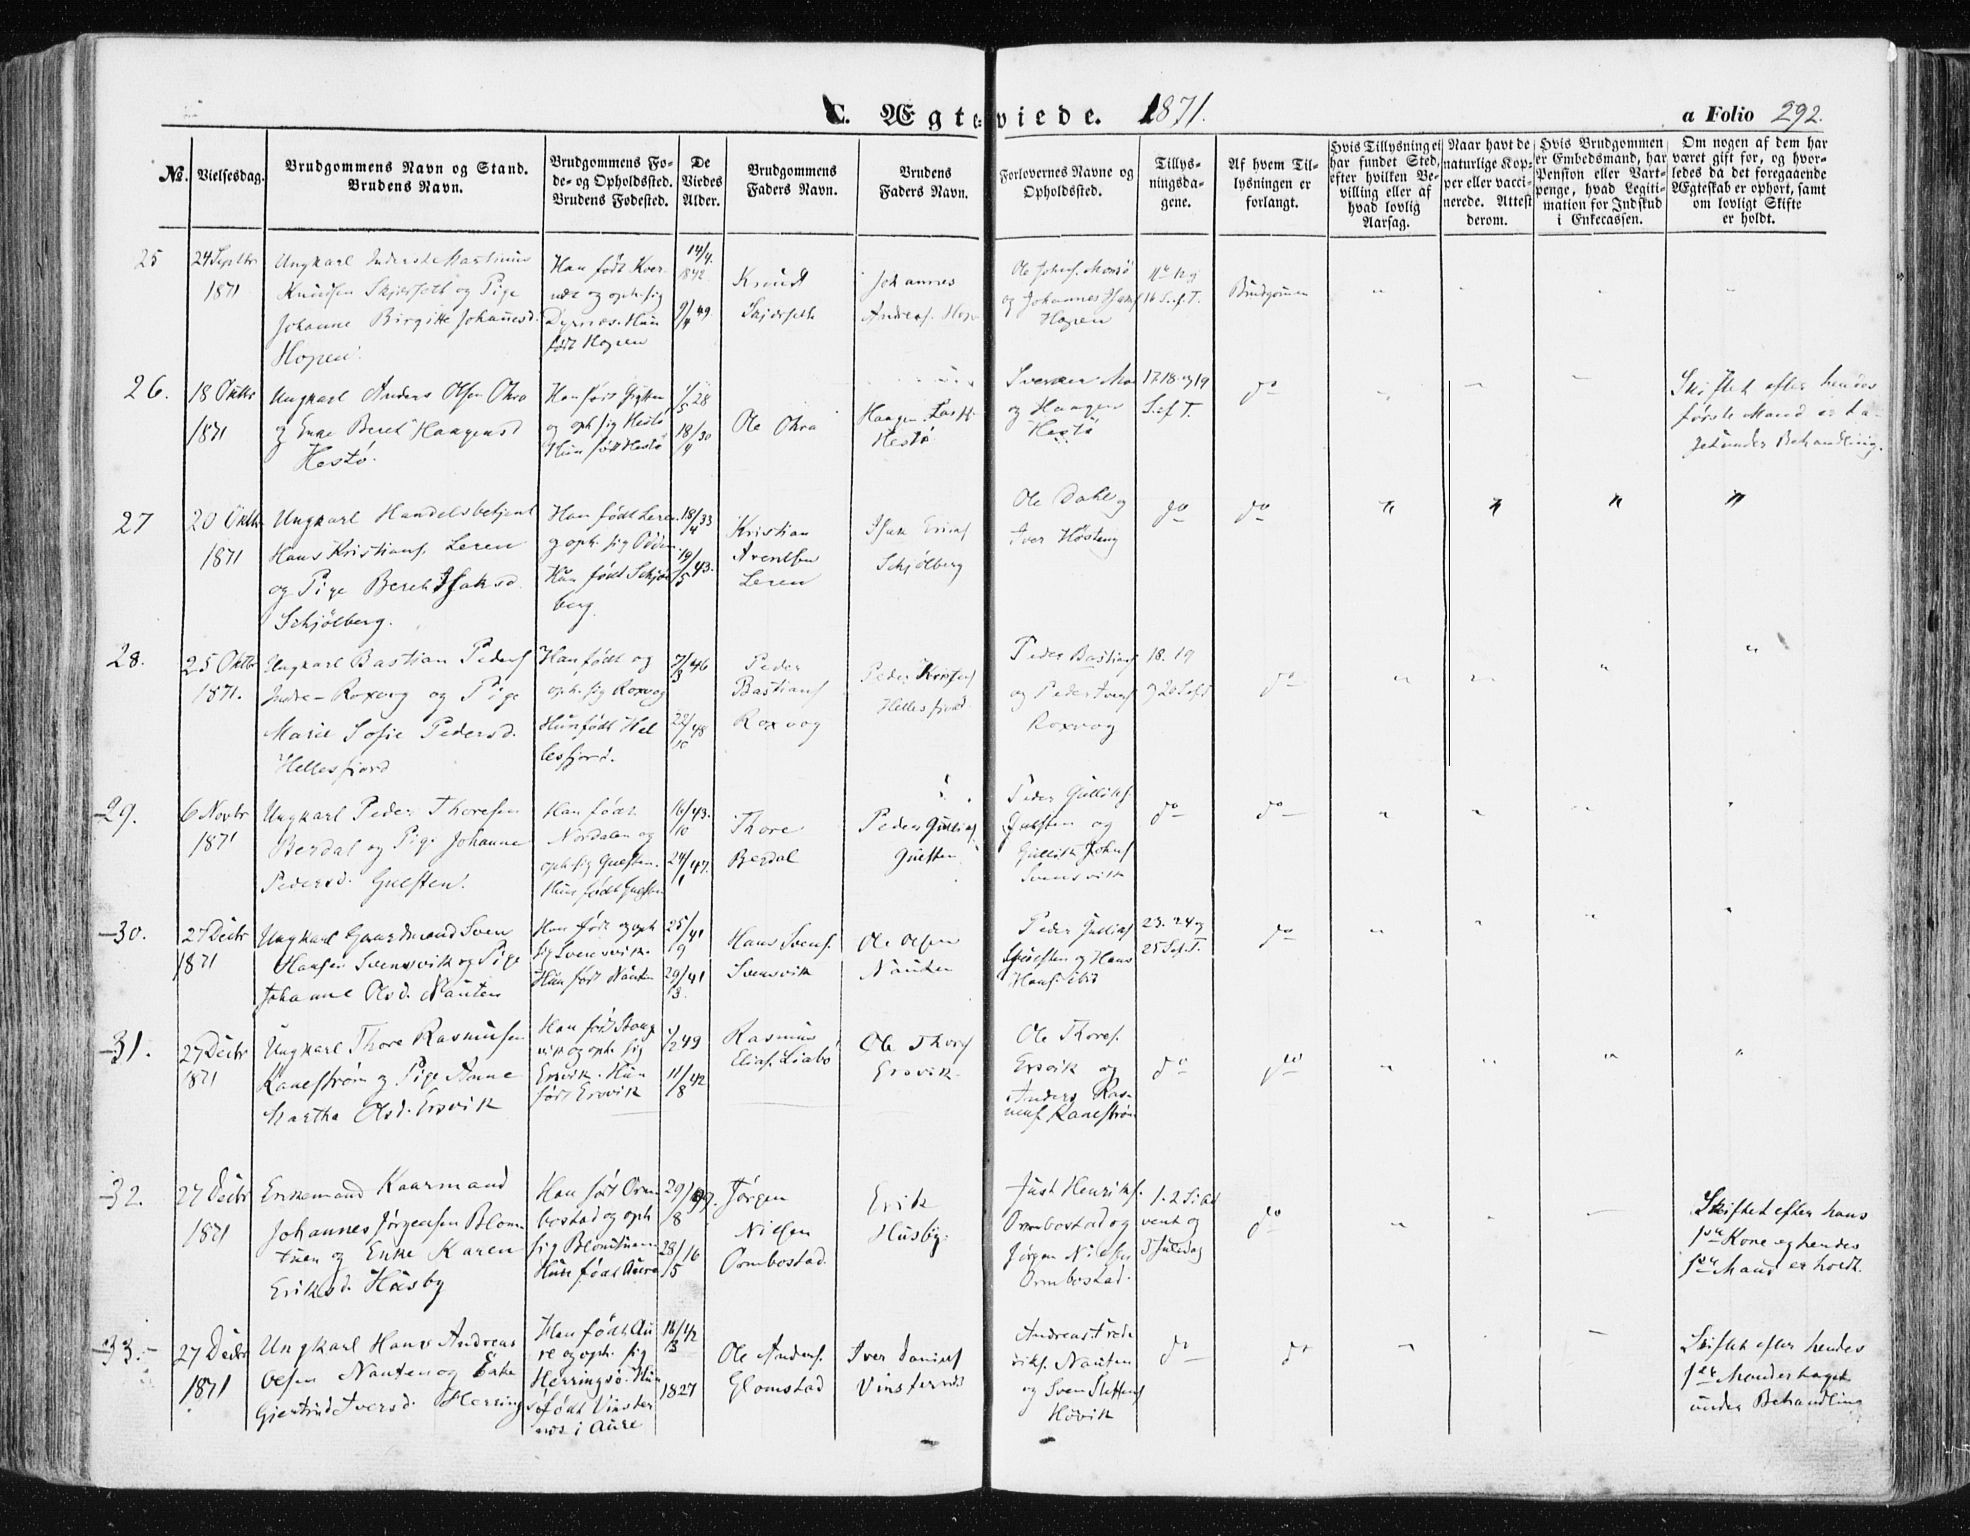 C. Ægteviede. 1871.
a Folio 292.
No.
Vielsesdag.
Brudgommens Navn og Stand.
Brudens Navn.
Brudgommens Fo-
de- og Opholdssted.
Brudens Fødested.
De
Viedes
Alder.
Brudgommens
Faders Navn.
Brudens
Faders Navn.
Forlovernes Navne og
Opholdssted.
Tillys-
ningsda-
gene.
Af hvem Til-
lysningen er
forlangt.
Hvis Tillysning ei
har fundet Sted,
efter hvilken Be-
villing eller af
hvad lovlig
Aarsag.
Naar havt de
naturlige Kop-
per eller vacci-
nerede. Attest
derom.
Hvis Brudgommen
er Embedsmand, har
Pension eller Vart-
penge, hvad Legiti-
mation for Indskud
i Enkecassen.
Om nogen af dem har
været gift for, og hvor-
ledes da det foregaaende
Ægteskab er ophort, samt
om lovligt Skifte
er holdt.
25
24 Septbr
1871
Ungkarl Inderste Mastinus
Knudsen Skjerseth og Pige
Johanne Birgitte Johannesd.
Hopen.
Han født Kver-
næs og oph. sig
Dyrnæs. Hun
født Hopen
14/4
1842
9/4 49
Knudt
Skjerseth
Johannes
Andreas. Hop
Ole Johns. Monsø
og Johannes Isaks
Hopen
16 S. e. f. T.
Brudgommen
26.
18 Oktbr
1871
Ungkarl Anders Olsen Okro
og Enke Beret Haagensd
Hestø.
og oph. sig Hestø
Hun født Hestø
1/5 28
18/4 30
Ole Okro
Haagen Lark
Hestø
Sverker Mo
og Haagen
Hestø
17. 18 og 19
S. e. f. T.
do
Skiftet efter hendes
første Mand er ta-
get under Behandling.
27
20 Oktbr
1871
Ungkarl Handelsbetjent
Hans Kristians. Leren
og Pige Beret Isaksd.
Schjølberg.
Han født Leren
og oph. sig Odden.
Hun født Schjøl
berg.
18/4 33
19/5 43.
Kristian
Arentsen
Leren
Isak Eriks
Schjølberg
Ole Dahl og
Iver Høsteng
do
do
28.
25 Oktbr
1871.
Ungkarl Bastian Peders
Indre-Roxvog og Pige
Marie Sofie Pedersd.
Hellesfjord
Han født og
oph. sig Roxvog
Hun født Hel
lesfjord.
7/3 46
22/10 48
Peder
Bastians
Roxvog
Peder Kristens
Hellesfjord.
Peder Bastians
og Peder Ivers
Roxvog
18. 19
og 20 S. e. f. T
do
29.
6 Novbr
1871
Ungkarl Peder Thoresen
Berdal og Pige Johanne
Pedersd. Gulsten.
Han født
Nordalen og
oph. sig Gulsten.
Hun født Gulsten
16/10 43.
24/1 47.
Thore
Berdal
Peder Gulliks.
Gulsten
Peder Gulliks.
Gulsten og
Gullik Johns
Svensvik
do
do
30.
27 Decbr
1871
Ungkarl Gaardmand Sven
Hansen Svensvik og Pige
Johanne Olsd. Nauten
Han født og oph
sig Svensvik.
Hun født Nauten
25/9 41
29/3 41
Hans Svens.
Svensvik
Ole Olsen
Nauten
Peder Gulliks
Gulsten og Hans
Hans. ibid
23. 24 og
25 S. e. f. T.
do
31.
27 Decbr
1871
Ungkarl Thore Rasmusen
Kanestrøm og Pige Anne
Martha Olsd. Ersvik
vik og oph. sig
Ersvik. Hun
født Ersvik
1/2 49
11/8 42
Rasmus
Elias. Liabø
Ole Thors
Ersvik.
Ole Thores.
Ersvik og
Anders Ras-
mus. Kanestrøm
do
do
32.
27 Decbr
1871
Enkemand Kaarmand
Johannes Jørgensen Blom
tuen og Enke Karen
Eriksd. Husby
Han født Orm
bostad og oph
sig Blomtuen
Hun født Aure
29/8
28/5 16
Jørgen
Nielsen
Ormbostad.
Erik
Husby.
Just Henriks.
Ormbostad og
Jørgen Nilsen
Ormbostad.
1. 2 S. i Ad
vent og
3 Juledag
do
Skiftet efter hans
1ste Kone og hendes
1ste Mand er holdt.
33.
27 Decbr
1871
Ungkarl Hans Andreas
Olsen Nauten og Enke
Gjertrud Iversd. Herrings
Han født Au
re og oph. sig
Herringsø. Hun
født Vinster
næs i Aure
16/3 42
1827
Ole Anders.
Glomstad
Iver Daniels
Vinsternæs
Andreas Frede
riks. Nauten
og Sven Steffens
Hovik
do
do
Skiftet efter hendes
1ste Mand er taget
under Behandling